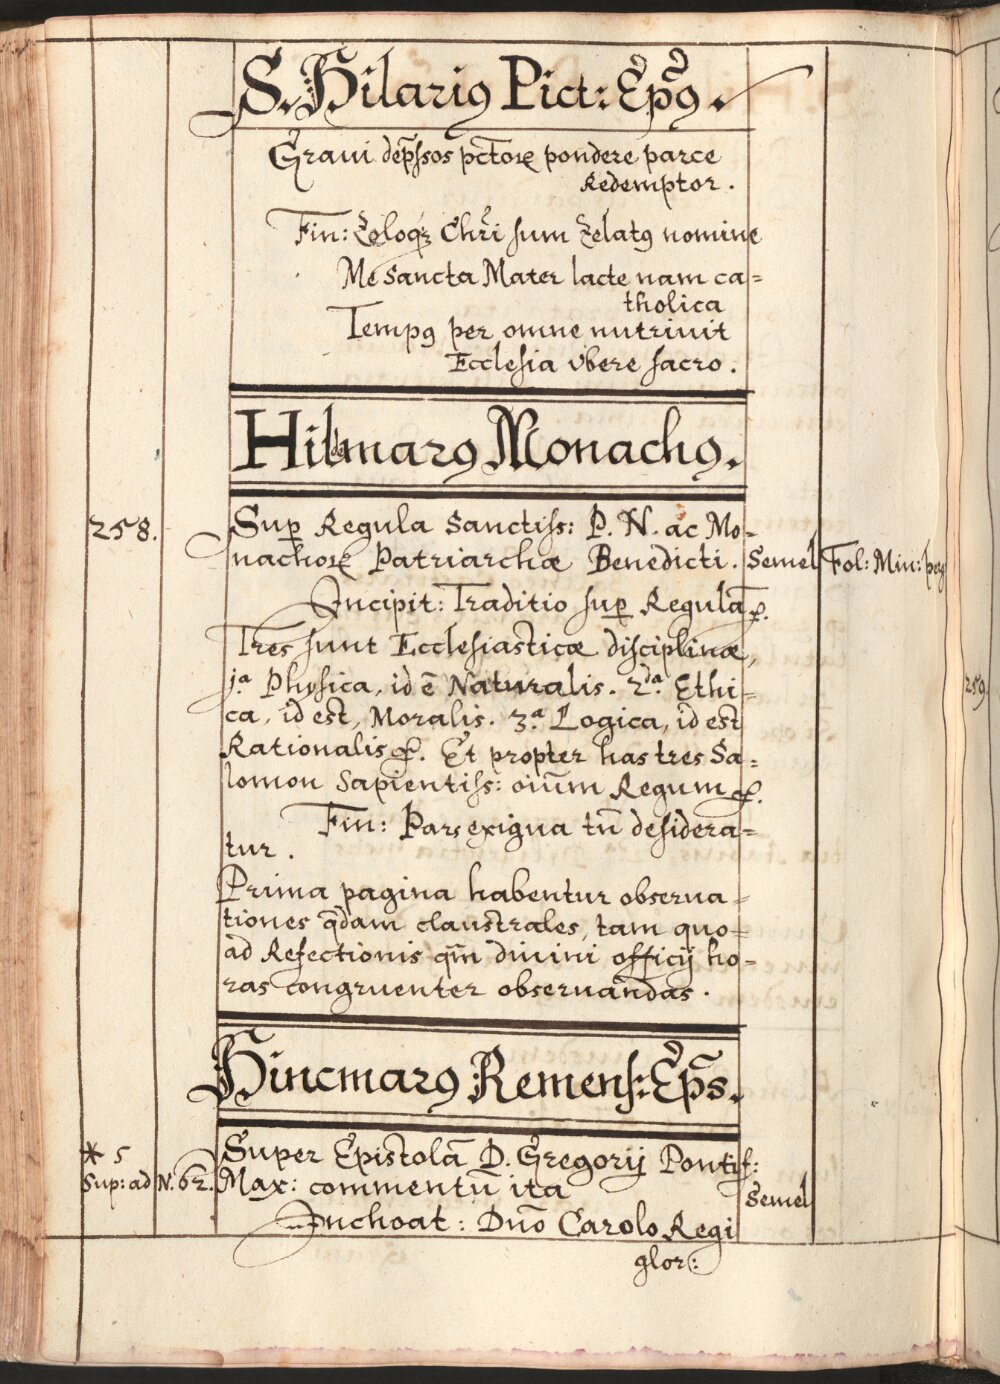 S. Hilariꝰ Pict: Ep̃ꝰ.
Graui dep̃ſsos pc̃toꝝ pondere parce
Redemptor.
Fin: Zeloq꜠ Chr̃i ſum Zelatꝰ nomine
Me Sancta Mater lacte nam ca=
tholica
Tempꝰ per omne nutriuit
Eccleſia vbere ſacro.
Hildmarꝰ Monachꝰ.
258.
Suꝑ Regula Sanctiſs: P. N. ac Mo-
nachoꝝ Patriarchæ Benedicti. Semel Fol: Min: perg
Incipit: Traditio ſuꝑ Regulã ꝛc.
Tres ſunt Eccleſiasticæ diſciplinæ,
j.ª Phyſica, id ẽ Naturalis. 2.da Ethi=
ca, id est, Moralis. 3.ª Logica, id est
Rationalis ꝛc. Et propter has tres Sa=
lomon Sapientiſs: oiũm Regum ꝛc.
Fin: Pars exigua tñ deſidera=
tur.
Prima pagina habentur obserua-
tiones q̃dam claustrales, tam quo-
ad Refectionis q̃m diuini officij ho-
ras congruenter obseruandas.
259
Hincmarꝰ Remenſ: Ep̃s.
* 5
Sup: ad N. 62.
Super Epistolã D. Gregorij Pontif:
Max: commentũ ita
Semel
Inchoat: Dño Carolo Regi
glor: